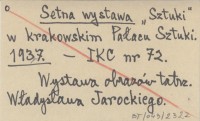 Setna wystawa „Sztuki"
w krakowskim Pałacu Sztuki.
1937. – IKC nr 72.
Wystawa obrazów tatrz.
Władysława Jarockiego.